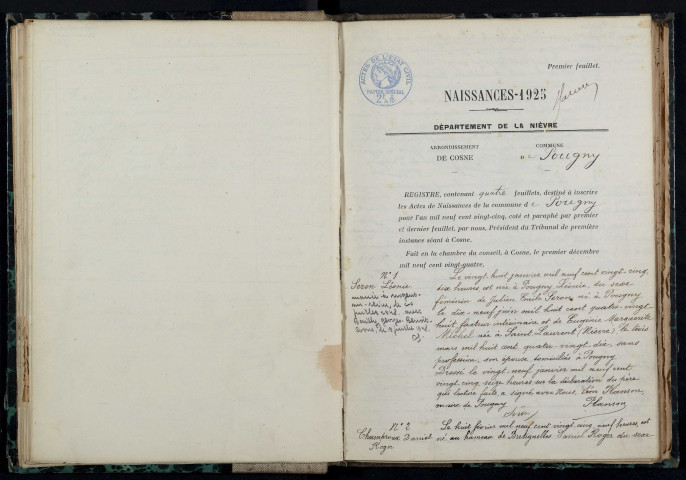 Premier feuillet.
ACTES DE L'ÉTAT CIVIL
PAPIER SPÉCIAL
NAISSANCES-1925
DÉPARTEMENT DE LA NIÈVRE
ARRONDISSEMENT
DE COSNE
COMMUNE
de Pougny
REGISTRE, contenant quatre feuillets, destiné à inscrire
les Actes de Naissances de la commune de Pougny
pour l'an mil neuf cent vingt-cinq, coté et paraphé par premier
et dernier feuillet, par nous, Président du Tribunal de première
instance séant à Cosne.
Fait en la chambre du conseil, à Cosne, le premier décembre
mil neuf cent vingt-quatre.
N° 1
Seron Léonie
Le vingt huit janvier mil neuf cent vingt-cinq,
dix heures, est née à Pougny Léonie, du sexe
féminin de Julien Emile Seron né à Pougny
le dix-neuf juin mil huit cent quatre vingt
huit facteur intérimaire et de Eugénie Marguerite
Michel née à Saint Laurent (Nièvre) le trois
mars mil huit cent quatre-vingt-dix sans
profession, son épouse domiciliés à Pougny
Dressé le vingt-neuf janvier mil neuf cent
vingt cinq, seize heures sur la déclaration du père
qui, lecture faite, a signé avec Nous, Léon Planson
maire de Pougny Planson
Seron
N° 2
Champroux Daniel
Roger
Le huit février mil neuf cent vingt cinq, neuf heures, est
né au hameau de Daniel Roger du sexe